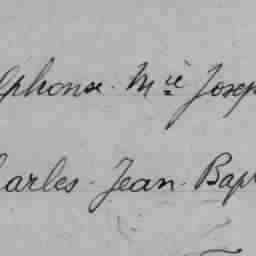 lphonse. Mie Josep
harles. Jean. Bap